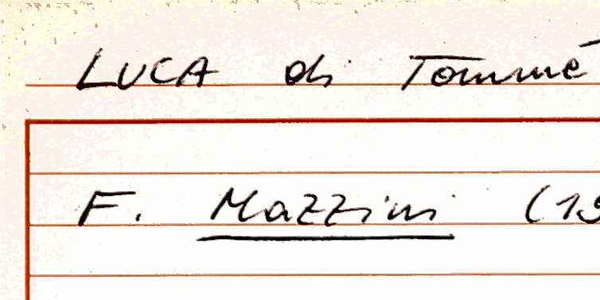 LUCA di Tommè
F. Mazzini (19